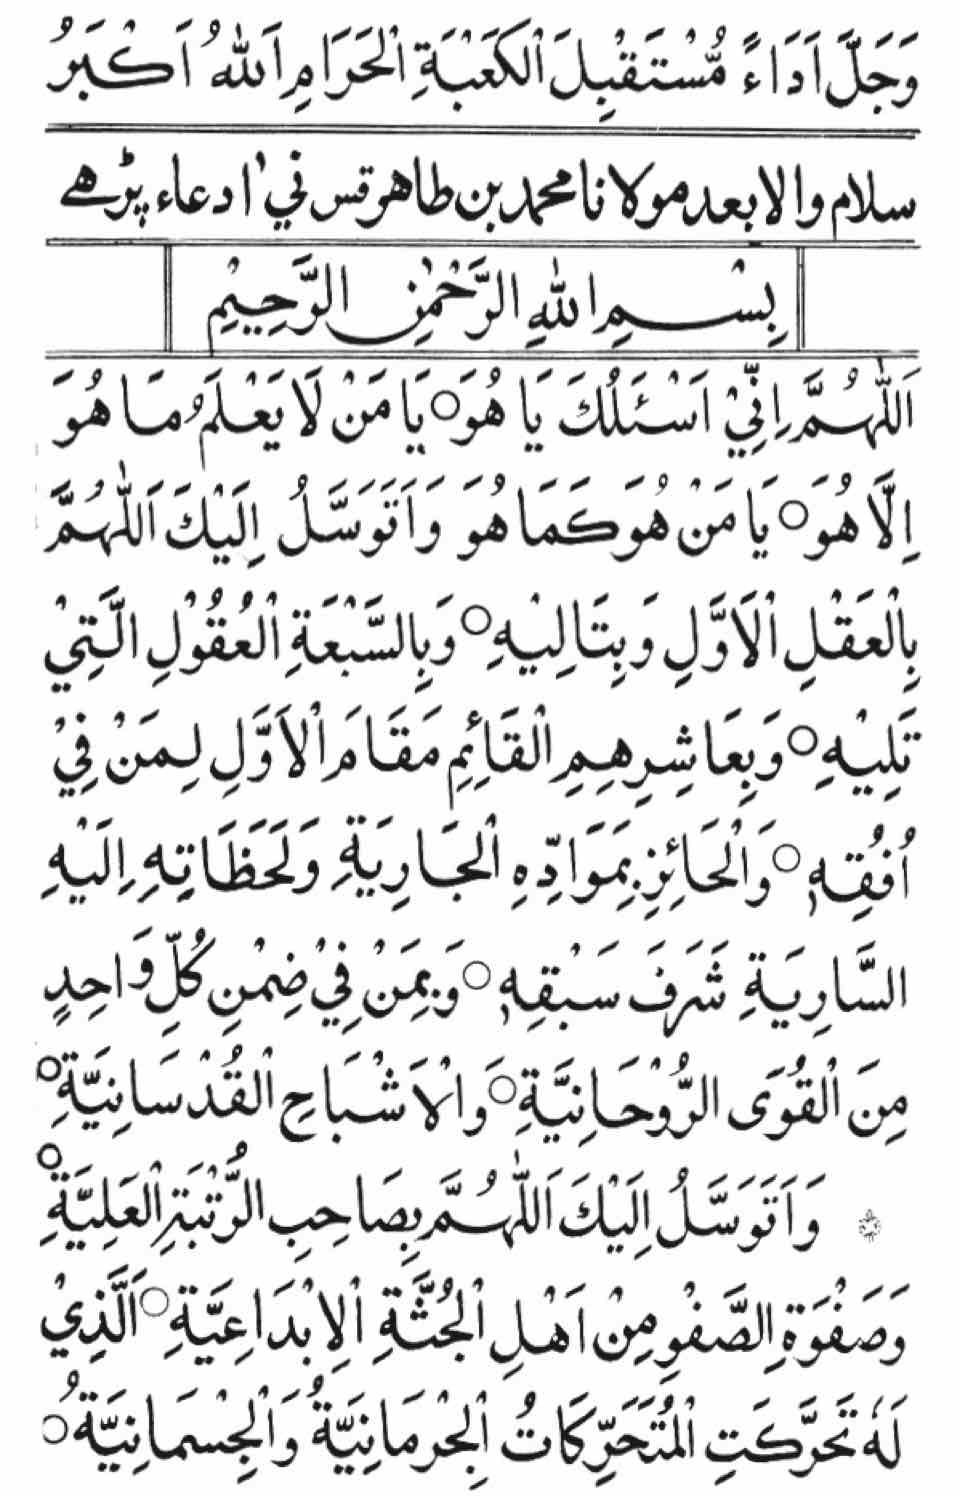 وَجَلَّ اَدَاءً مُّسْتَقْبِلَ الْكَعْبَةِ الْحَرَامِ اَللهُ اَكْبَرُ
سلام والا بعد مولانا محمد بن طاهر قس ني ا دعاء پڑهے
بِسْمِ اللهِ الرَّحْمٰنِ الرَّحِيْمِ
اَللّٰهُمَّ اِنِّيْ اَسْئَلُكَ يَا هُوَ ○ يَا مَنْ لَا يَعْلَمُ مَا هُوَ
اِلَّا هُوَ ○ يَا مَنْ هُوَ كَمَا هُوَ وَاَتَوَسَّلُ اِلَيْكَ اَللّٰهُمَّ
بِالْعَقْلِ الْاَوَّلِ وَبِتَالِيْهِ ○ وَبِالسَّبْعَةِ الْعُقُوْلِ الَّتِيْ
تَلِيْهِ ○ وَبِعَاشِرِهِمِ الْقَائِمِ مَقَامَ الْاَوَّلِ لِمَنْ فِيْ
اُفُقِهٖ ○ وَالْحَائِزِ بِمَوَادِّهِ الْجَارِيَةِ وَلَحَظَاتِهِ اِلَيْهِ
السَّارِيَةِ شَرَفَ سَبْقِهٖ ○ وَبِمَنْ فِيْ ضِمْنِ كُلِّ وَاحِدٍ
مِنَ الْقُوَى الرُّوْحَانِيَّةِ ○ وَالْاَشْبَاحِ الْقُدْسَانِيَّةِ ○
وَاَتَوَسَّلُ اِلَيْكَ اَللّٰهُمَّ بِصَاحِبِ الرُّتْبَةِ الْعَلِيَّةِ ○
وَصَفْوَةِ الصَّفْوِ مِنْ اَهْلِ الْجُثَّةِ الْاِبْدَاعِيَّةِ ○ اَلَّذِيْ
لَهٗ تَحَرَّكَتِ الْمُتَحَرِّكَاتُ الْجِرْمَانِيَّةُ وَالْجِسْمَانِيَّةُ ○